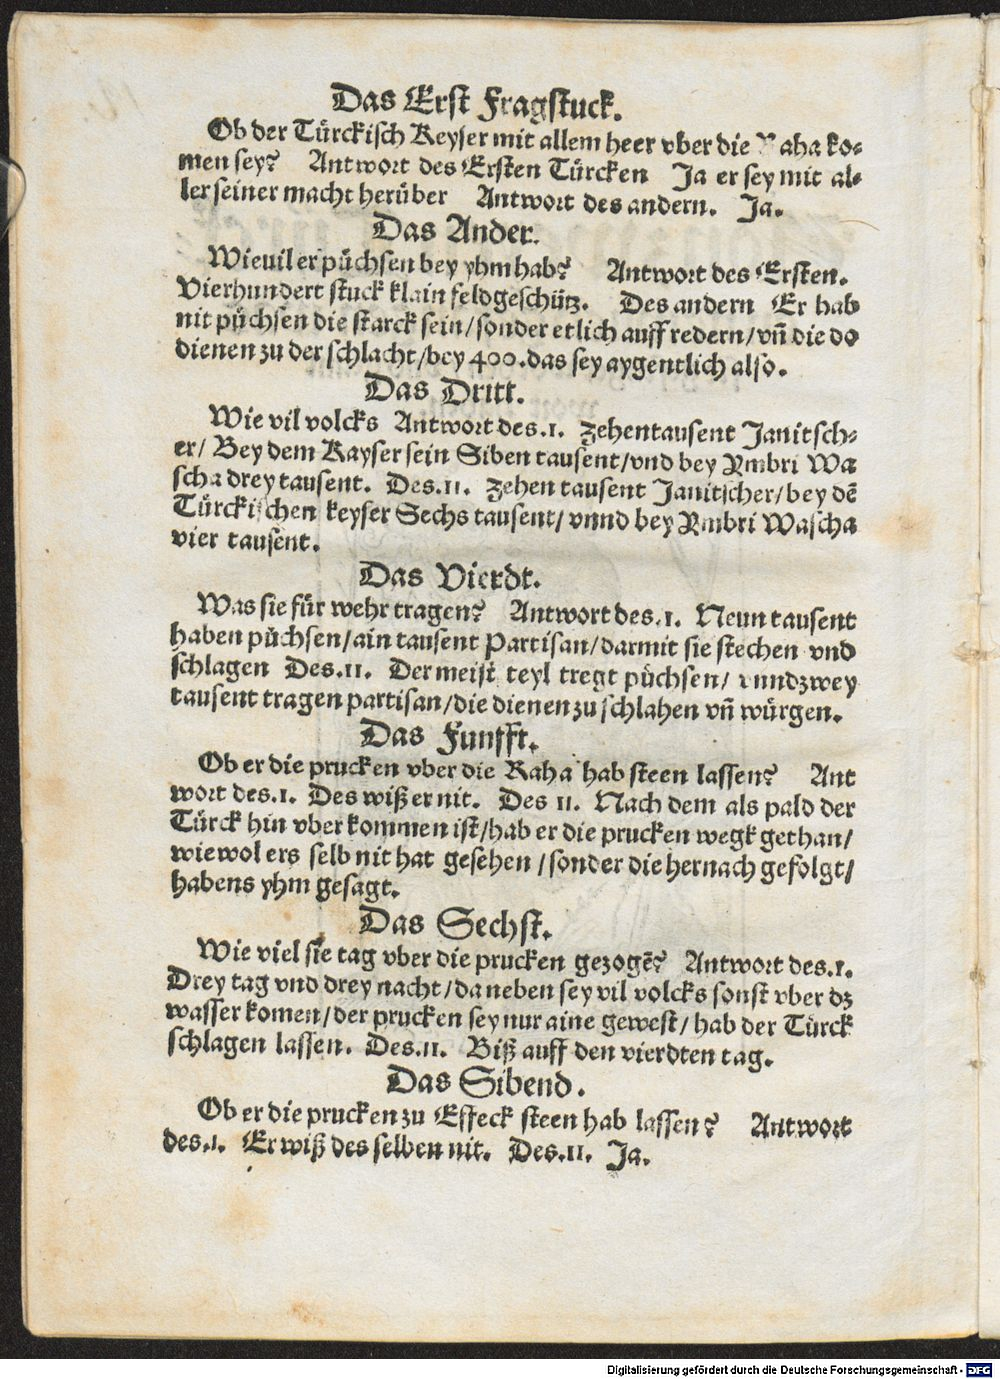 Das Erst Fragstuck.
Ob der Türckisch Keyser mit allem heer vber die Raha ko⸗
men sey? Antwort des Ersten Türcken Ja er sey mit al⸗
ler seiner macht herüber Antwort des andern. Ja.
Das Ander.
Wieuil er püchsen bey yhm hab? Antwort des Ersten.
Vierhundert stuck klain feldgeschütz. Des andern Er hab
nit püchsen die starck sein/sonder etlich auff redern/vñ die do
dienen zu der schlacht/bey 400.das sey aygentlich also.
Das Dritt.
Wie vil volcks Antwort des.1. Zehentausent Janitsch⸗
er/ Bey dem Kayser sein Siben tausent/vnd bey Ymbri Wa
scha drey tausent. Des.11. Zehen tausent Janitscher/bey dē
Türckischen keyser Sechs tausent/vnnd bey Ymbri Wascha
vier tausent.
Das Vierdt.
Was sie für wehr tragen? Antwort des.1. Neun tausent
haben püchsen/ain tausent Partisan/darmit sie stechen vnd
schlagen Des.11. Der meist teyl tregt püchsen/ vnndzwey
tausent tragen partisan/die dienen zu schlahen vñ würgen.
Das Funfft.
Ob er die prucken vber die Raha hab steen lassen? Ant
wort des.1. Des wiß er nit. Des 11. Nach dem als pald der
Türck hin vber kommen ist/hab er die prucken wegk gethan/
wiewol ers selb nit hat gesehen/sonder die hernach gefolgt/
habens yhm gesagt.
Das Sechst.
Wie viel sie tag vber die prucken gezogē? Antwort des.1.
Drey tag vnd drey nacht/daneben sey vil volcks sonst vber dz
wasser komen/der prucken sey nur aine gewest/hab der Türck
schlagen lassen. Des.11. Biß auff den vierdten tag.
Das Sibend.
Ob er die prucken zu Esseck steen hab lassen? Antwort
des.1. Er wiß des selben nit. Des.11. Ja.
Digitalisierung gefördert durch die Deutsche Forschungsgemeinschaft - DFG